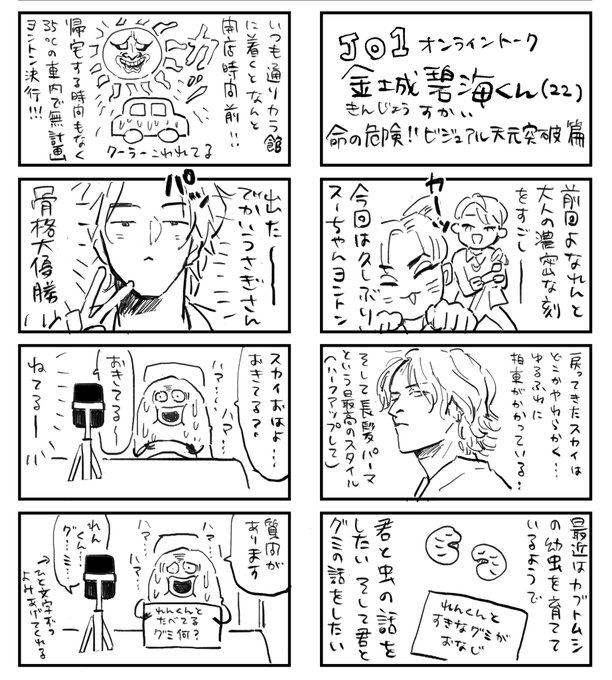 JO1 オンライントーク
金城碧海くん(22)
きんじょう すかい
命の危険!! ビジュアル天元突破篇
前回よなれんと
大人の濃密な刻
をすごし――
キャーッ
今回は久しぶり
スーちゃんヨントン
戻ってきたスカイは
どこかやわらかく…
ゆるふわに
拍車がかかっている…
そして長髪パーマ
という最高のスタイル
(ハーフアップして)
最近はカブトムシ
の幼虫を育てて
いるようで
君と虫の話を
したい そして君と
グミの話をしたい
れんくんと
すきなグミが
おなじ
いつも通りカラ館
に着くとなんと
開店時間前!!
カッ
帰宅する時間もなく
35℃の車内で無計画
ヨントン決行!!!
クーラーこわれてる
出た――
でかいうさぎさん
パッ
骨格大優勝
スカイおはよ…
おきてる?
ハァ…
ハァ…
おきてる〜
ねてる――
質問が
あります
ハァ…
ハァ…
れん
くん…
グ…ミ…
れんくんと
たべてる
グミ何?
↑ひと文字ずつ
よみあげてくれる